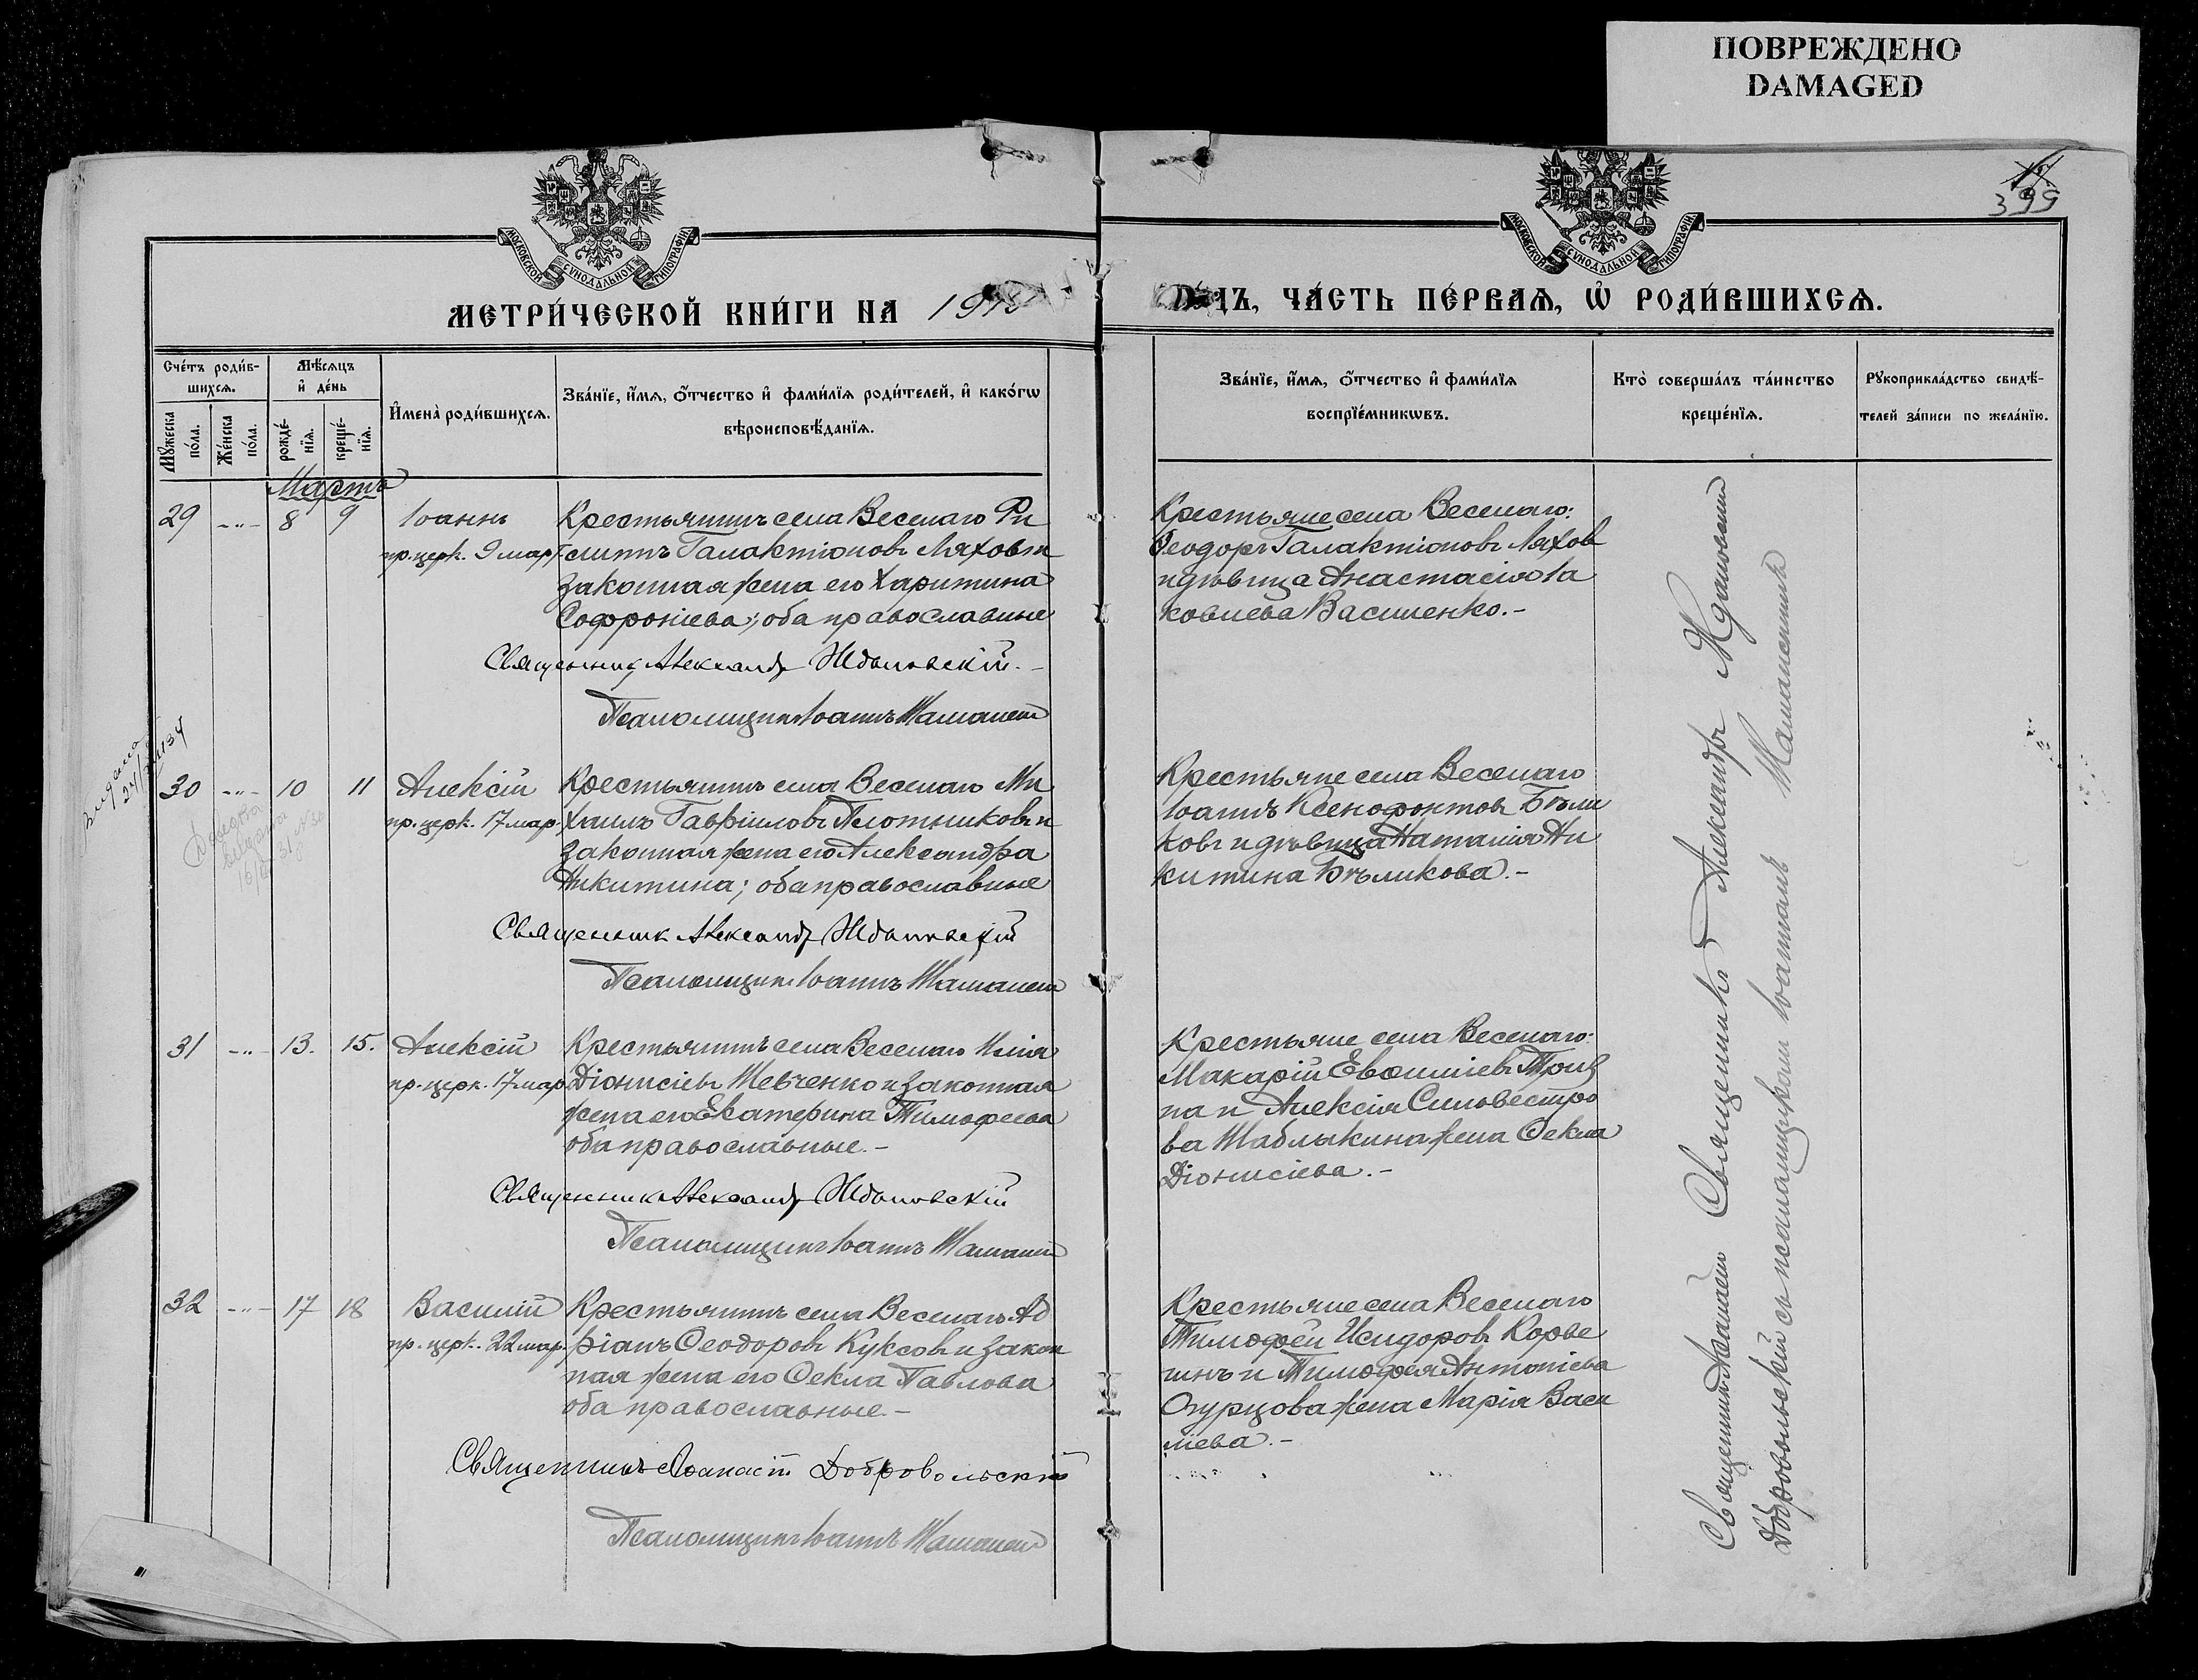 ПОВРЕЖДЕНО
DAMAGED
399
МОСКОВСКОЙ СѴНОДАЛЬНОЙ ТИПОГРАФІИ
МОСКОВСКОЙ СѴНОДАЛЬНОЙ ТИПОГРАФІИ
МЕТРИ́ЧЕСКОЙ КНИ́ГИ НА
ЧА́СТЬ ПЕ́РВАѦ, Ѡ҆ РОДИ́ВШИХСѦ.
Сче́тъ роди́в-
шихсѧ.
Мѣ́сѧцъ
и҆ де́нь
Мꙋ́жеска
по́ла.
Же́нска
по́ла.
рожде́-
нїѧ.
креще́-
нїѧ.
И҆мена̀ роди́вшихсѧ.
Зва́нїе, и҆́мѧ, ѻ҆́тчество и҆ фами́лїѧ роди́телей, и҆ како́гѡ
вѣроисповѣ́данїѧ.
Зва́нїе, и҆́мѧ, ѻ҆́тчество и҆ фами́лїѧ
воспрїе́мникѡвъ.
Кто̀ соверша́лъ та́инство
креще́нїѧ.
Рꙋкоприкла́дство свидѣ́-
телей за́писи по жела́нїю.
Мартъ
29 -"- 8 9 Іоаннъ
пр. церк. 9 мар.
Крестьянинъ села Веселаго Фи
липпъ Галактіоновъ Ляховъ и
законная жена его Харитина
Софроніева; оба православные
Священникъ Александръ Ждановскій.-
Псаломщикъ Іоаннъ
Крестьяне села Веселаго:
Ѳеодоръ Галактіоновъ Ляховъ
и дѣвица Анастасія Іа
ковлева Василенко.-
30 -"- 10 11 Алексій
пр. церк. 17 мар.
Крестьянинъ села Веселаго Ми
хаилъ Гавріиловъ Плотниковъ и
законная жена его Александра
Никитина; оба православные
Священникъ Александръ Ждановскій
Псаломщикъ Іоаннъ
Крестьяне села Веселаго
Іоаннъ Ксенофонтовъ Бѣли
ковъ и дѣвица Наталія Ни
китина Бѣликова.-
31 -"- 13. 15. Алексій
пр. церк. 17 мар.
Крестьянинъ села Веселаго Илія
Діонисіевъ Шевченко и законная
жена его Екатерина Тимофеева
оба православные.-
Священникъ Александръ Ждановскій
Псаломщикъ Іоаннъ
Крестьяне села Веселаго:
Макарій
на и Алексія Сильвестро
ва Шаблыкина жена Ѳекла
Діонисіева.-
32 -"- 17 18 Василій
пр. церк. 22 мар.
Крестьянинъ села Веселаго Ад
ріанъ Ѳеодоровъ Куксовъ и закон
ная жена его Ѳекла Павлова
оба православные.-
Священникъ Аѳанасій Добровольскій
Псаломщикъ Іоаннъ
Крестьяне села Веселаго
Тимофей Исидоровъ
и Тимофея Антоніева
Огурцова жена Марія Васи
ліева.-
Священникъ Александръ Ждановскій
Священникъ Аѳанасій
Добровольскій съ псаломщикомъ Іоанномъ